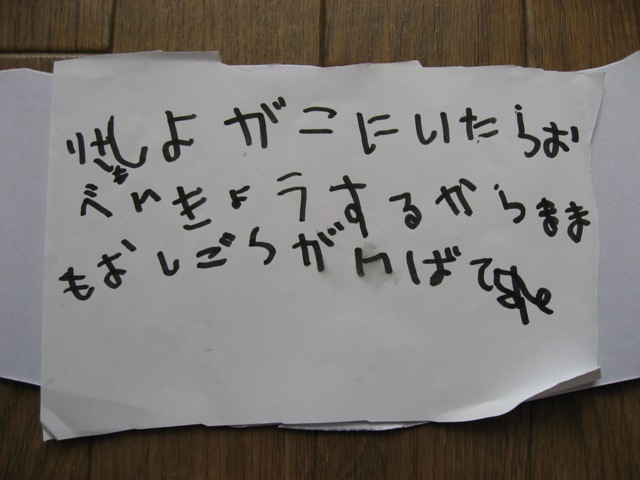 しよがこにいたらお
べんきょうするからまま
もおしごらがんばてね